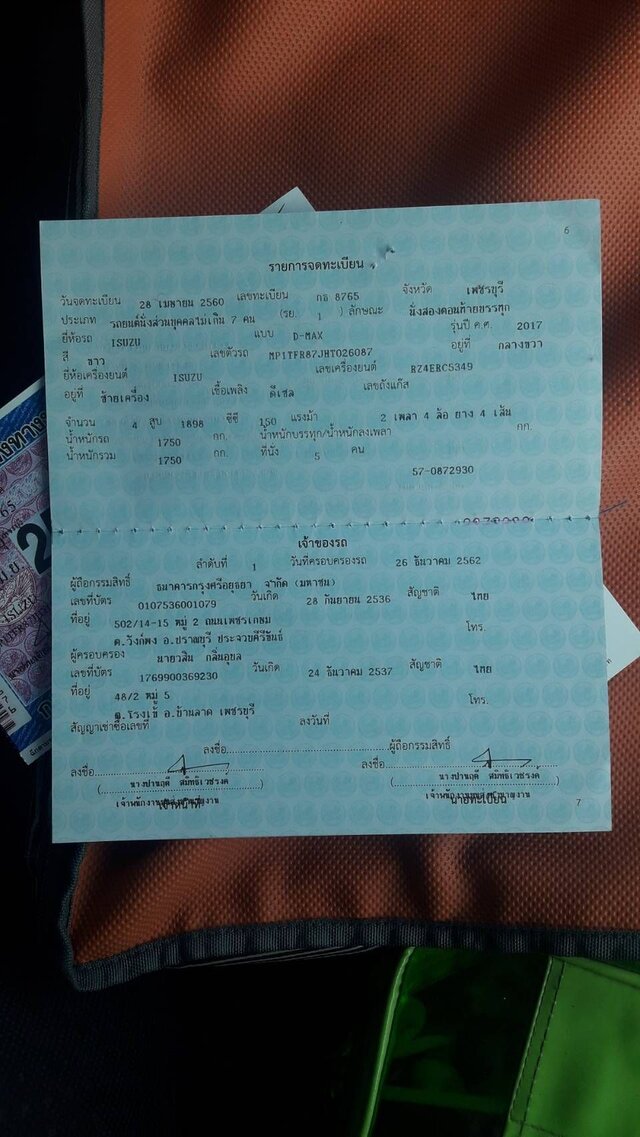 6
รายการจดทะเบียน
วันจดทะเบียน 28 เมษายน 2560 เลขทะเบียน กธ 8765 จังหวัด เพชรบุรี
ประเภท รถยนต์นั่งส่วนบุคคลไม่เกิน 7 คน (รย. 1 ) ลักษณะ นั่งสองตอนท้ายบรรทุก
ยี่ห้อรถ ISUZU แบบ D-MAX รุ่นปี ค.ศ. 2017
สี ขาว เลขตัวรถ MP1TFR87JHT026087 อยู่ที่ กลางขวา
ยี่ห้อเครื่องยนต์ ISUZU เลขเครื่องยนต์ RZ4ERC5349
อยู่ที่ ซ้ายเครื่อง เชื้อเพลิง ดีเซล เลขถังแก๊ส
จำนวน 4 สูบ 1898 ซีซี 150 แรงม้า 2 เพลา 4 ล้อ ยาง 4 เส้น
น้ำหนักรถ 1750 กก. น้ำหนักบรรทุก/น้ำหนักลงเพลา กก.
น้ำหนักรวม 1750 กก. ที่นั่ง 5 คน
57-0872930
เจ้าของรถ
ลำดับที่ 1 วันที่ครอบครองรถ 26 ธันวาคม 2562
ผู้ถือกรรมสิทธิ์ ธนาคารกรุงศรีอยุธยา จำกัด (มหาชน)
เลขที่บัตร 0107536001079 วันเกิด 28 กันยายน 2536 สัญชาติ ไทย
ที่อยู่ 502/14-15 หมู่ 2 ถนนเพชรเกษม โทร.
ต.วังก์พง อ.ปราณบุรี ประจวบคีรีขันธ์
ผู้ครอบครอง นายวสิน กลิ่นอุบล
เลขที่บัตร 1769900369230 วันเกิด 24 ธันวาคม 2537 สัญชาติ ไทย
ที่อยู่ 48/2 หมู่ 5 โทร.
ต.โรงเข้ อ.บ้านลาด เพชรบุรี
สัญญาเช่าซื้อเลขที่ ลงวันที่
ลงชื่อ ผู้ถือกรรมสิทธิ์
ลงชื่อ ลงชื่อ
เจ้าหน้าที่ นายทะเบียน
7